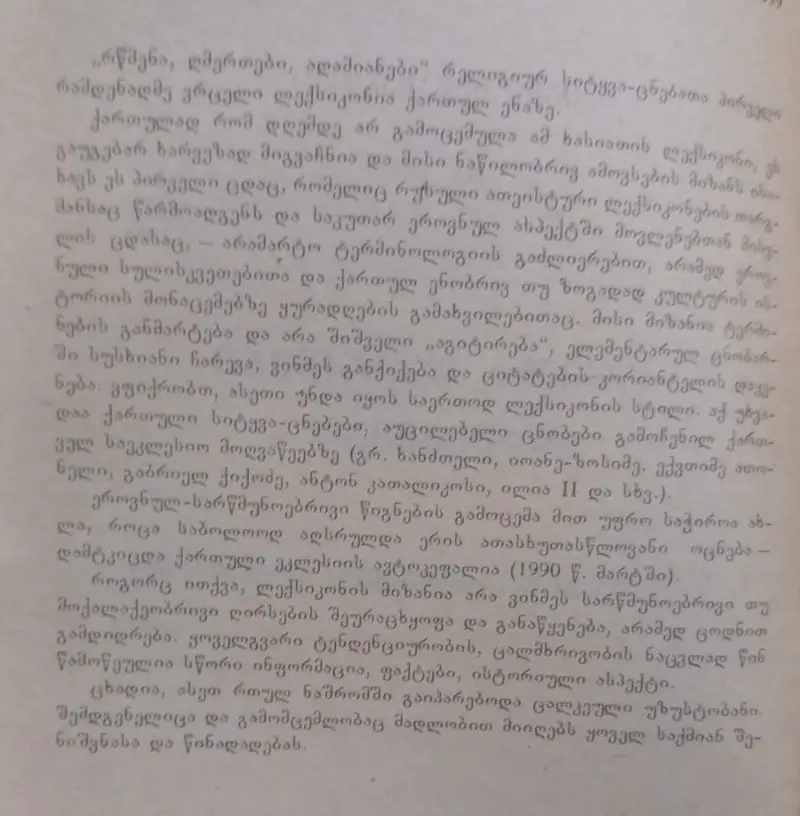 „რწმენა, ღმერთები, ადამიანები“ რელიგიურ სიტყვა-ცნებათა პირველი
რამდენადმე ვრცელი ლექსიკონია ქართულ ენაზე.
ქართულად რომ დღემდე არ გამოცემულა ამ ხასიათის ლექსიკონი, ეს
გაუგებარ ხარვეზად მიგვაჩნია და მისი ნაწილობრივ ამოვსების მიზანს ისა-
ხავს ეს პირველი ცდაც, რომელიც რუსული ათეისტური ლექსიკონების თარგ-
მანსაც წარმოადგენს და საკუთარ ეროვნულ ასპექტში მოვლენებთან მისვ-
ლის ცდასაც, — არამარტო ტერმინოლოგიის გაძლიერებით, არამედ ეროვ-
ნული სულისკვეთებითა და ქართულ ენობრივ თუ ზოგადად კულტურის ის-
ტორიის მონაცემებზე ყურადღების გამახვილებითაც. მისი მიზანია ტერმი-
ნების განმარტება და არა შიშველი „აგიტირება“, ელემენტარულ ცნობარ-
ში სუსხიანი ჩარევა, ვინმეს განქიქება და ციტატების კორიანტელის დაყე-
ნება. ვფიქრობთ, ასეთი უნდა იყოს საერთოდ ლექსიკონის სტილი. აქ უხვა-
დაა ქართული სიტყვა-ცნებები, აუცილებელი ცნობები გამოჩენილ ქართ-
ველ საეკლესიო მოღვაწეებზე (გრ. ხანძთელი, იოანე-ზოსიმე, ექვთიმე ათო-
ნელი, გაბრიელ ქიქოძე, ანტონ კათალიკოსი, ილია II და სხვ.).
ეროვნულ-სარწმუნოებრივი წიგნების გამოცემა მით უფრო საჭიროა ახ-
ლა, როცა საბოლოოდ აღსრულდა ერის ათასხუთასწლოვანი ოცნება —
დამტკიცდა ქართული ეკლესიის ავტოკეფალია (1990 წ. მარტში).
როგორც ითქვა, ლექსიკონის მიზანია არა ვინმეს სარწმუნოებრივი თუ
მოქალაქეობრივი ღირსების შეურაცხყოფა და განაწყენება, არამედ ცოდნით
გამდიდრება. ყოველგვარი ტენდენციურობის, ცალმხრივობის ნაცვლად წინ
წამოწეულია სწორი ინფორმაცია, ფაქტები, ისტორიული ასპექტი.
ცხადია, ასეთ რთულ ნაშრომში გაიპარებოდა ცალკეული უზუსტობანი.
შემდგენელიცა და გამომცემლობაც მადლობით მიიღებს ყოველ საქმიან შე-
ნიშვნასა და წინადადებას.